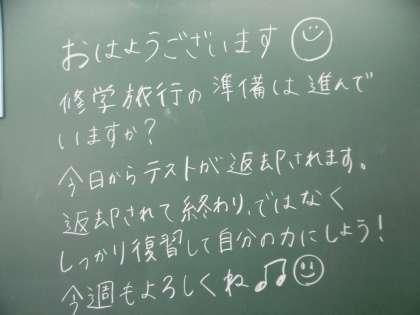 おはようございます
修学旅行の準備は進んで
いますか?
今日からテストが返却されます。
返却されて終わり、ではなく
しっかり復習して自分の力にしよう!
今週もよろしくね♫